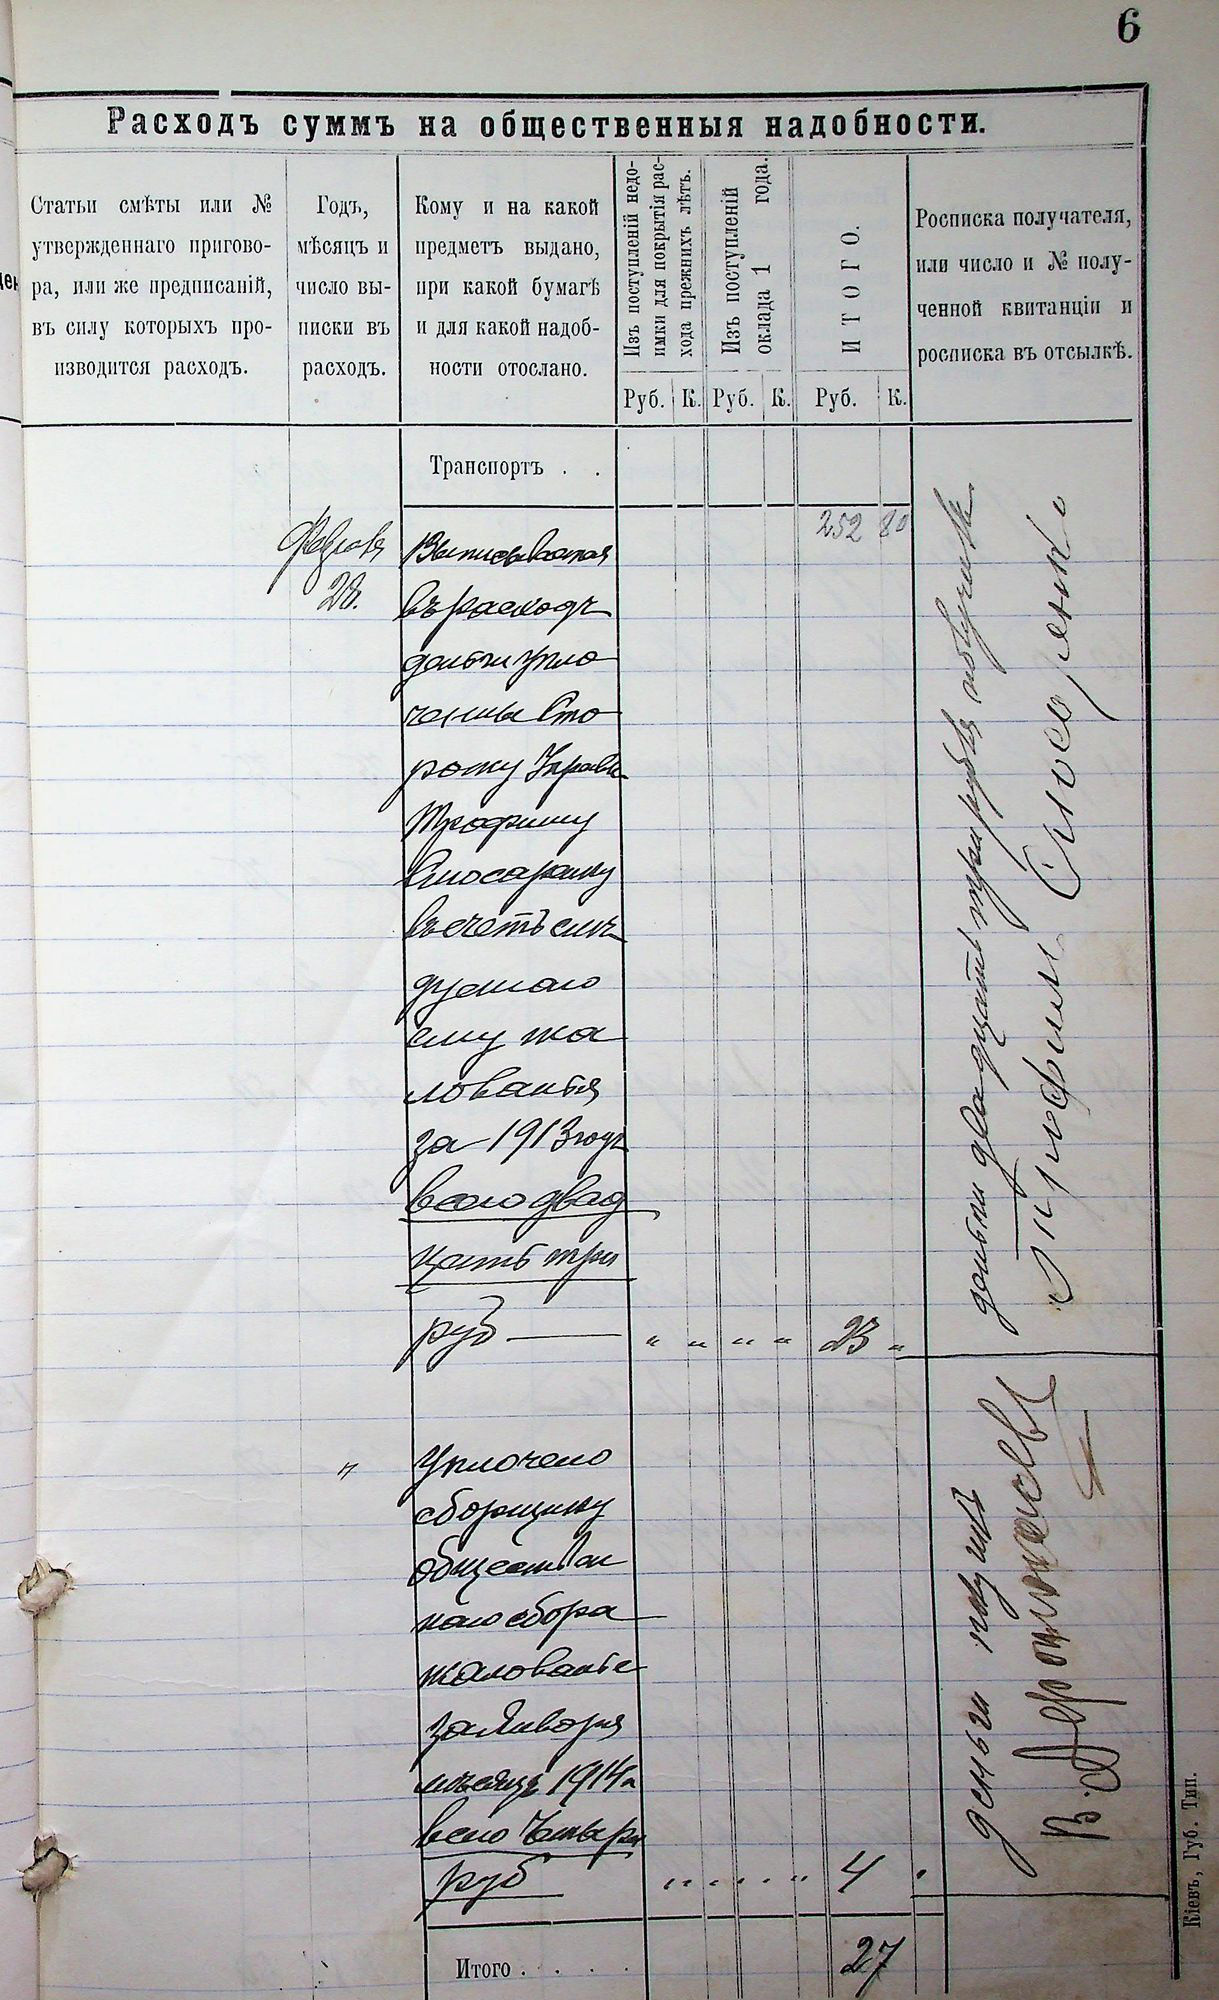 6
Расходъ суммъ на общественныя надобности.
Статьи смѣты или №
утвержденнаго пригово-
ра, или же предписаній,
въ силу которыхъ про-
изводится расходъ.
Годъ,
мѣсяцъ и
число вы-
писки въ
расходъ.
Кому и на какой
предметъ выдано,
при какой бумагѣ
и для какой надоб-
ности отослано.
Изъ поступленій недо-
имки для покрытія рас-
хода прежнихъ лѣтъ.
Изъ поступленій
оклада 1 года.
ИТОГО.
Росписка получателя,
или число и № полу-
ченной квитанціи и
росписка въ отсылкѣ.
Руб. К. Руб. К. Руб. К.
Транспортъ . .
252 80
Февраля
28.
Выписываются
въ расходъ
деньги упло
ченные Сто
рожу Управы
Трофиму
Слюсарику
въ счетъ слѣ
дуемаго
ему жа
лованья
за 1913 годъ
всего двад
цать три
руб — " " " " 23 "
деньги двадцать три рубля получилъ
Трофим
"
Уплочено
сборщику
обществен
наго сбора
жалованье
за Январь
мѣсяцъ 1914 г
всего Четыри
руб " " " " 4 "
деньги получилъ
В.
Итого . . . . 27
Кіевъ, Губ. Тип.